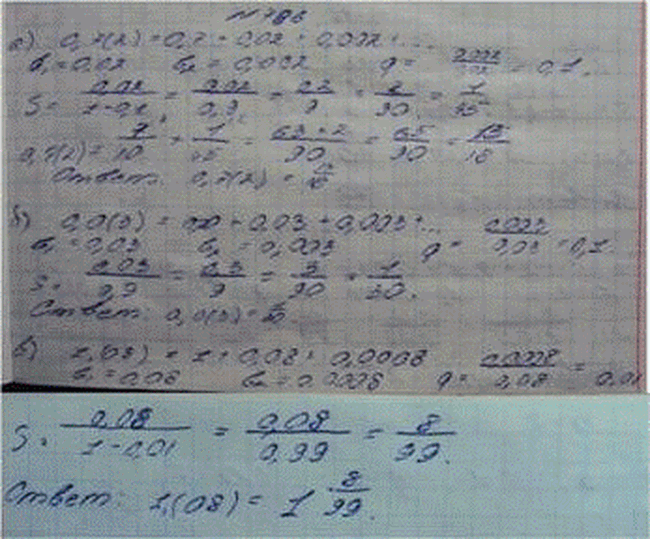 №786
а) 0,7(2) = 0,7 + 0,02 + 0,002 + ...
b₁ = 0,02 b₂ = 0,002 q = 0,002/0,02 = 0,1.
S = 0,02/1-0,1 = 0,02/0,9 = 0,2/9 = 2/90 = 1/45
0,7(2) = 7/10 + 1/45 = 63+2/90 = 65/90 = 13/18
Ответ: 0,7(2) = 13/18
б) 0,0(3) = 0,0 + 0,03 + 0,003 + ...
b₁ = 0,03 b₂ = 0,003 q = 0,003/0,03 = 0,1.
S = 0,03/0,9 = 0,3/9 = 3/90 = 1/30.
Ответ: 0,0(3) = 1/30
в) 1,(08) = 1 + 0,08 + 0,0008
b₁ = 0,08 b₂ = 0,0008 q = 0,0008/0,08 = 0,01
S = 0,08/1-0,01 = 0,08/0,99 = 8/99.
Ответ: 1,(08) = 1 8/99.